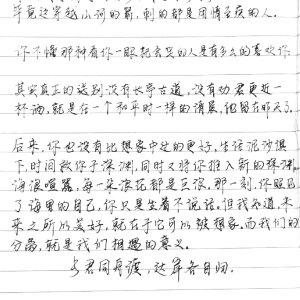 毕竟这穿越山河的箭，刺的都是用情至疾的人。
你不懂那种看你一眼就会哭的人是有多么的喜欢你
其实真正的送别没有长亭古道，没有劝君更近一
杯酒，就是在一个和平时一样的清晨，他留在昨天了。
后来，你也没有比想象中过的更好，生活泥沙俱
下，时间放你于深渊，同时又将你推入新的深渊。
海浪喧嚣，每一朵浪花都是巨浪，那一刻，你照见
了海里的自己，你只是坐着不说话。但我知道，未
来之所以美好，就在于它可以被想象。而我们的
分离，就是我们相遇的意义。
与君同舟渡，达岸各自归。